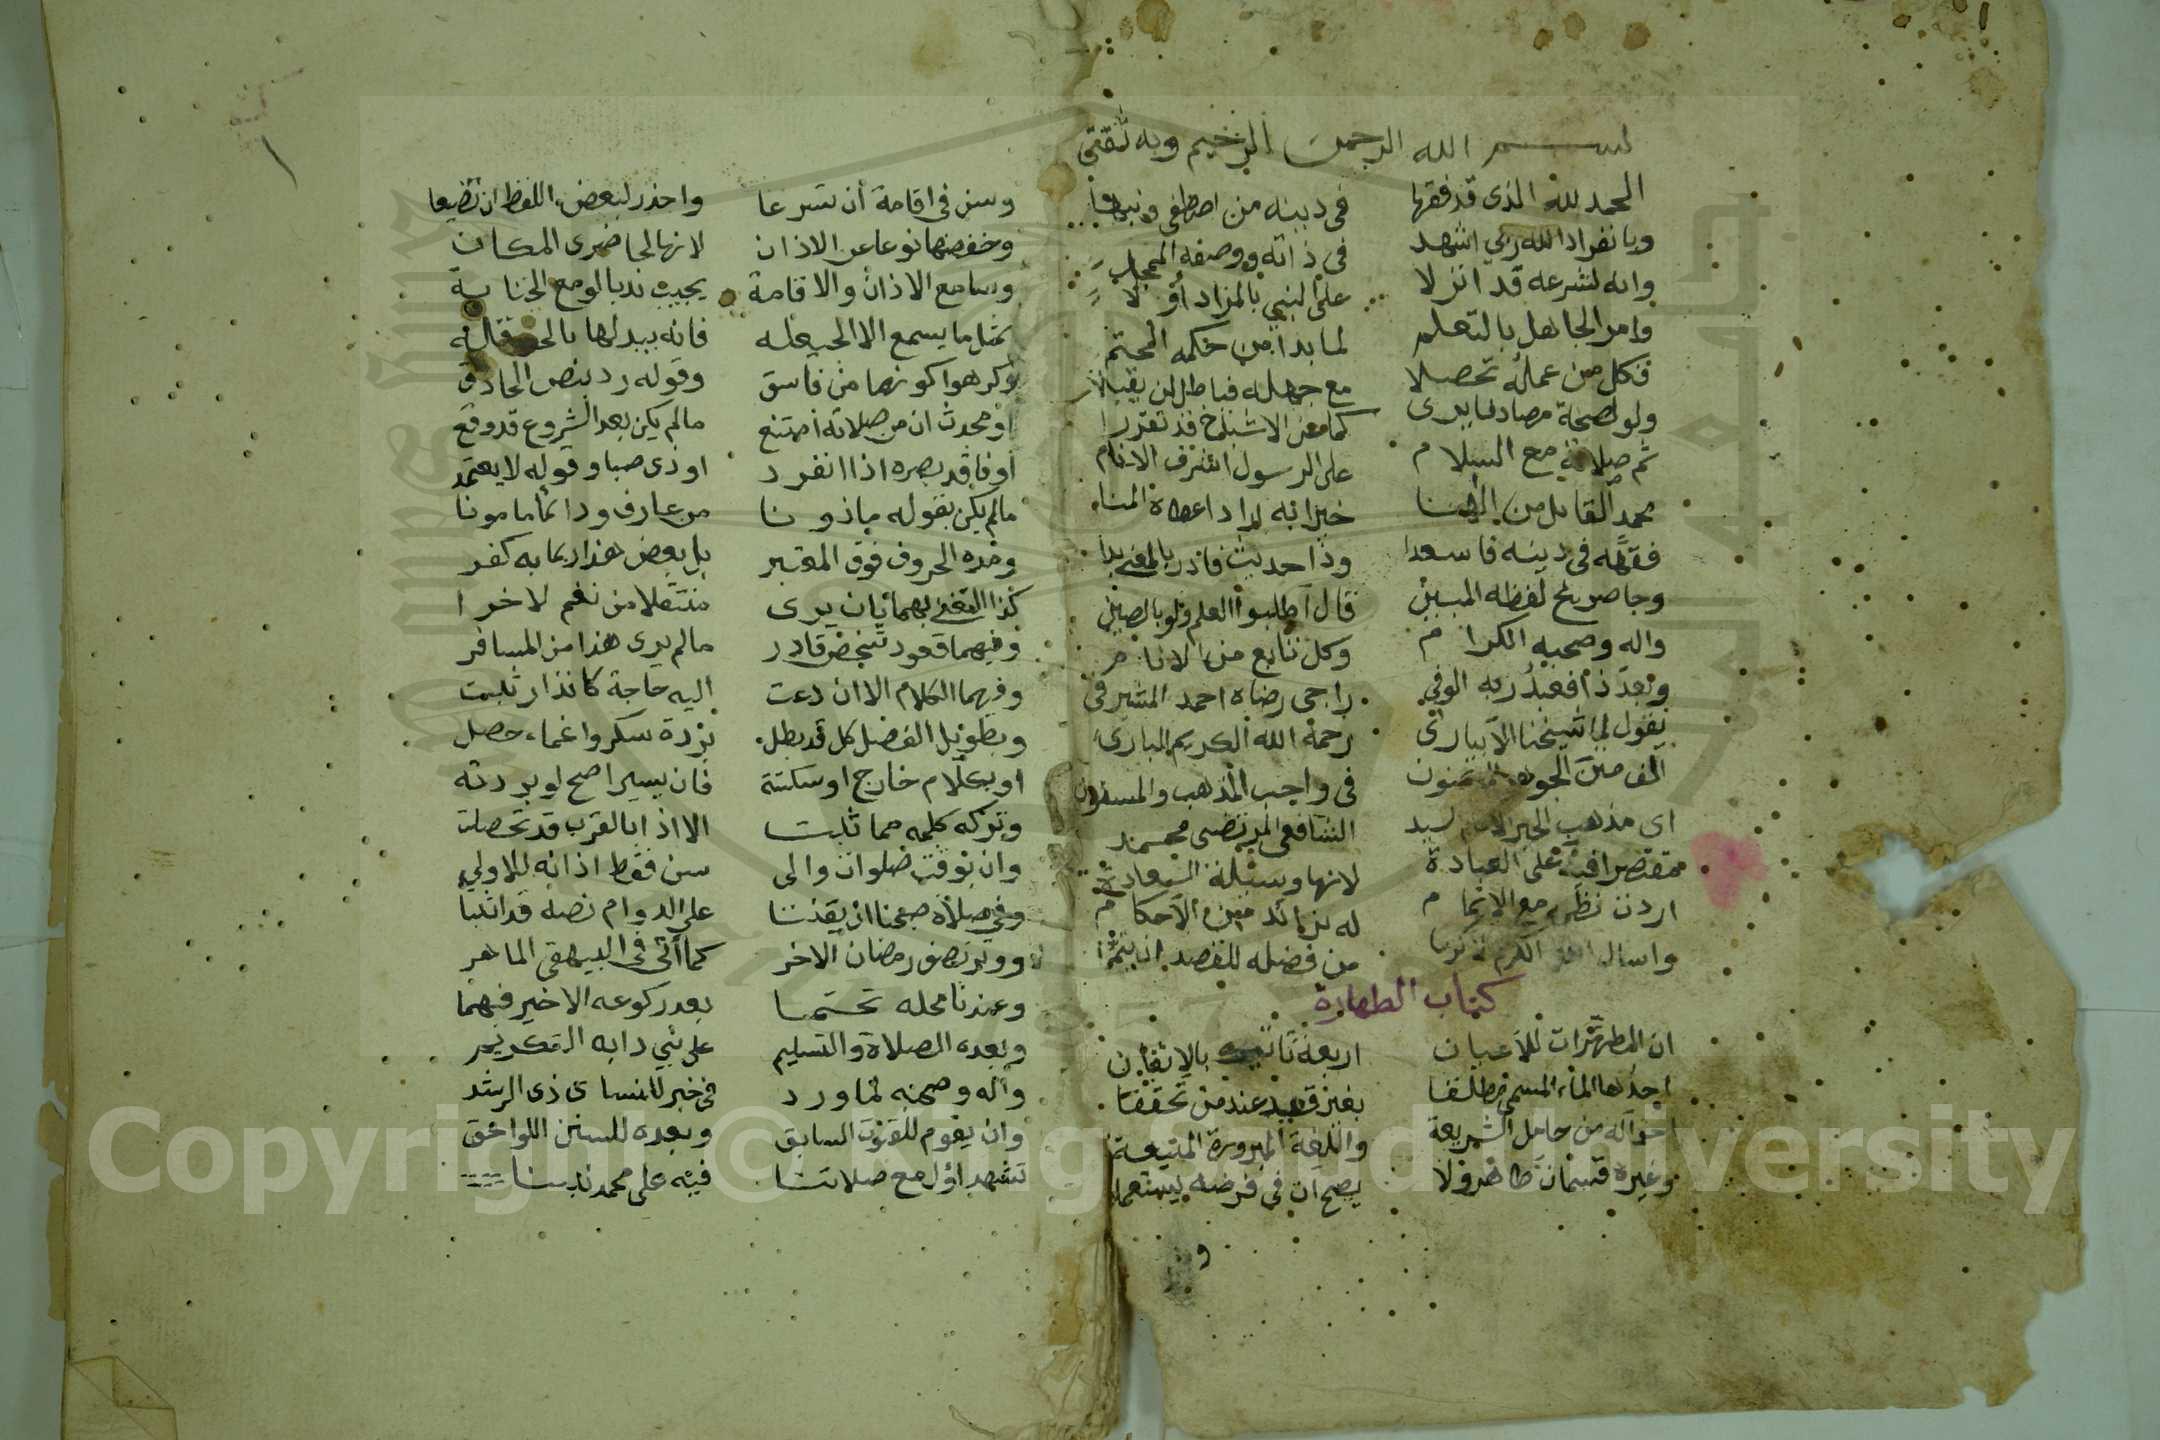 بسم الله الرحمن الرحيم وبه ثقتي
الحمد لله الذى قد فقها في دينه من اصطفى ونبها
وبانفراد الله ربي اشهد في ذاته ووصفه الممجد
وانه لشرعه قد انزلا على النبي بالمزاد أولا
وامر الجاهل بالتعلم لما بدا من حكمه المحتم
فكل من عمله تحصلا مع جهله فباطل لن يقبلا
ولو لصحة مصادفا يرى كما معن الاشياخ قد تقررا
ثم صلاته مع السلام على الرسول اشرف الانام
محمد القائل من الهنا خيرا به اراد اعطاه المنا
فقهه في دينه فاسعدا وذا حديث فادر بالمعنى بدا
وجا صريح لفظه المبين قال اطلبوا العلم ولو بالصين
واله وصحبه الكرام وكل تابع من الانام
وبعد ذا فعبد ربه الوفي راجى رضاه احمد المشرفي
يقول لما شيخنا الابيارى رحمة الله الكريم البارى
الف من الجوهر المكنون في واجب المذهب والمسنون
اى مذهب الحبر الامام السيد الشافعى المرتضى محمد
مقتصرا فيه على العبادة لانها وسيلة السعادة
اردت نظمه مع الاتمام له بزائد من الاحكام
واسال الله الكريم من فضله للقصد ان يتمما
كتاب الطهارة
ان المطهرات للاعيان اربعة تاتيك بالاتقان
احدها الماء المسمى مطلقا بغير قيد عند من تحققا
اخواله من حامل الشريعة واللغة المبرورة المتيعة
وغيره قسمان طاهر ولا يصح ان في فرضه يستعملا
و
وسن في اقامة أن تسرعا واحذر لبعض اللفظ ان تضيعا
وخفضها نوعا عن الاذان لانها لحاضرى المكان
وسامع الاذان والاقامة يجيب ندبا لو مع الجنابة
بمثل ما يسمع الا الحيعله فانه يبدلها بالحوقله
وكرهوا كونها من فاسق وقوله رد بنص الحاذق
او محدث ان من صلاته امتنع مالم يكن بعد الشروع قد وقع
او فاقد بصره اذا انفرد او ذى صبا وقوله لا يعتمد
مالم يكن بقوله ماذونا من عارف ودائما مامونا
ومده الحروف فوق المعتبر بل بعض هذا ربما به كفر
كذا التغنى بهما بان يرى منتقلا من نغم لاخرا
وفيهما قعود شخص قادر مالم يرى هذا من المسافر
وفيهما الكلام الا ان دعت اليه حاجة كانذار ثبت
وبطويل الفصل كل قد بطل بردة سكر واغماء حصل
او بكلام خارج او سكتة فان يسيرا صح لو بردته
وتركه كلمه مما ثبت الا اذا بالقرب قد تحصلت
وان بوقت صلوات والى سن فقط اذانه للاولى
وفي صلاة صبحنا ان يقنتا على الدوام نصه قد اثبتا
ووتر نصف رمضان الاخر كما أتى في البيهقى الماهر
وعندنا محله تحتما بعد ركوعه الاخير فيهما
وبعده الصلاة والتسليم على نبي دابه التكريم
وآله وصحبه لما ورد في خبر للنسائى ذى الرشد
وان يقوم للقنوت السابق وبعده للسنن اللواحق
تشهد اول مع صلاتنا فيه على محمد نبينا
Copyright © King Saud University